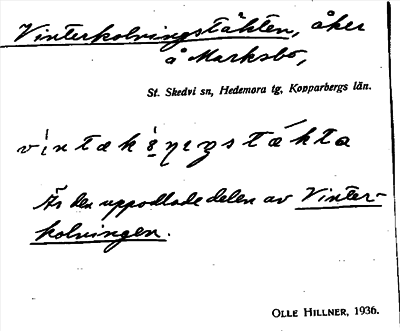 Vinterkolningstäkten, åker
å Marksbo,
St. Skedvi sn, Hedemora tg, Kopparbergs län.
Är den uppodlade delen av Vinter-
kolningen.
OLLE HILLNER, 1936.